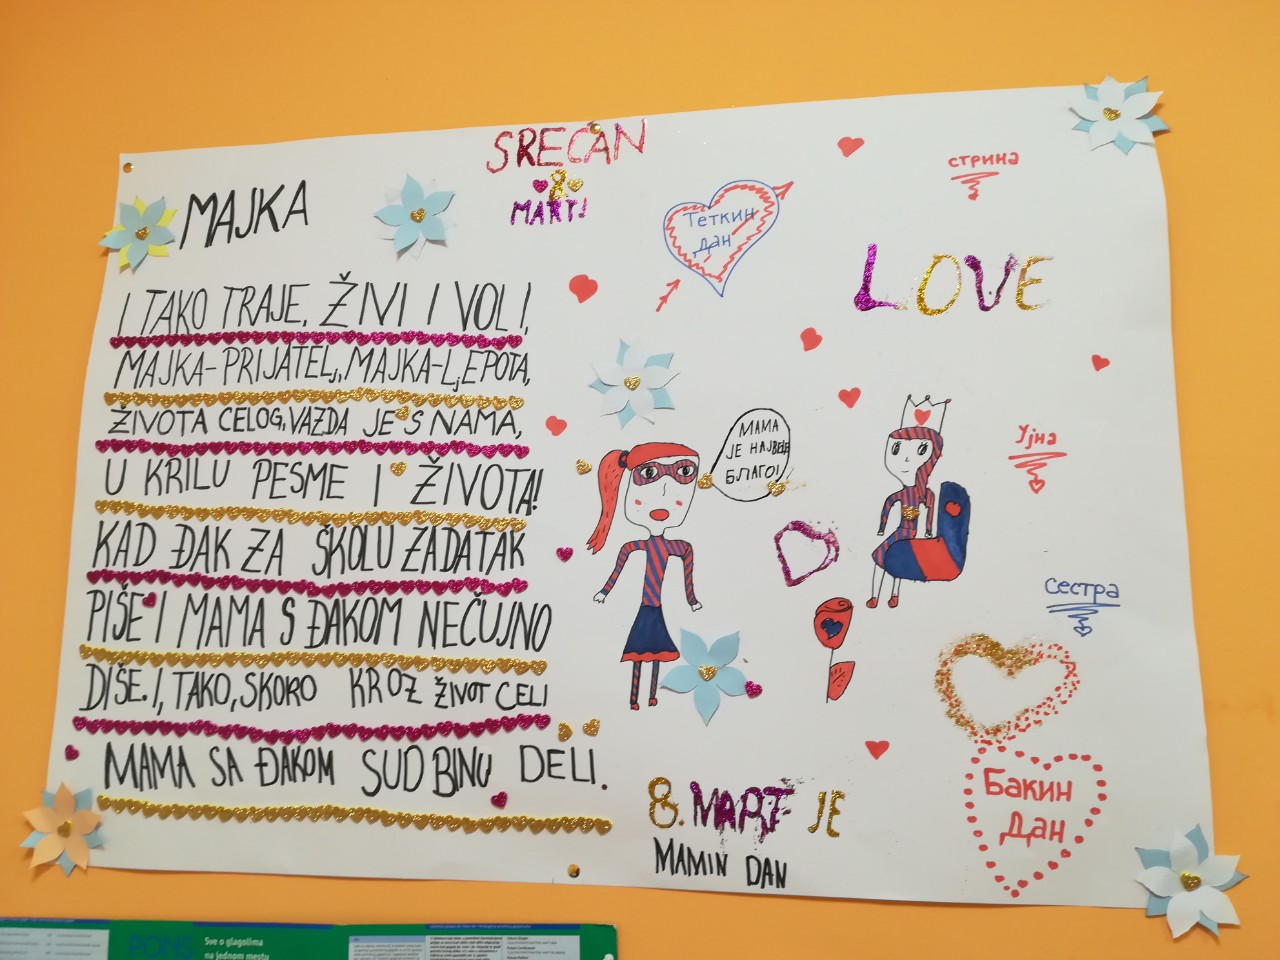 SREĆAN
8
MART!
MAJKA
I TAKO TRAJE, ŽIVI I VOLI,
MAJKA-PRIJATELJ, MAJKA-LJEPOTA,
ŽIVOTA CELOG, VAZDA JE S NAMA,
U KRILU PESME I ŽIVOTA!
KAD ĐAK ZA ŠKOLU ZADATAK
PIŠE I MAMA S ĐAKOM NEČUJNO
DIŠE. I, TAKO, SKORO KROZ ŽIVOT CELI
MAMA SA ĐAKOM SUDBINU DELI.
Теткин
дан
стрина
LOVE
МАМА
ЈЕ НАЈВЕЋЕ
БЛАГО!
Ујна
сестра
8. МАРТ ЈЕ
MAMIN DAN
Бакин
Дан
PONS
Sve o glagolima
na jednom mestu